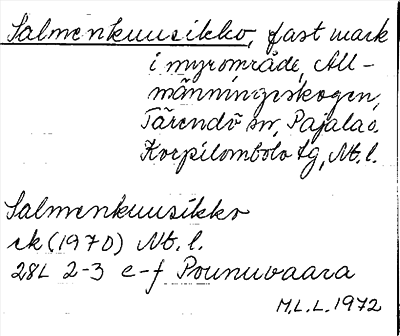 Salmenkuusikko, fast mark
i myrområde, All-
männingsskogen,
Tärendö sn, Pajala o.
Korpilombolo tg, Nb.l.
Salmenkuusikko
ek (1970) Nb.l.
28L 2-3 e-f Pounuvaara
M.L.L. 1972